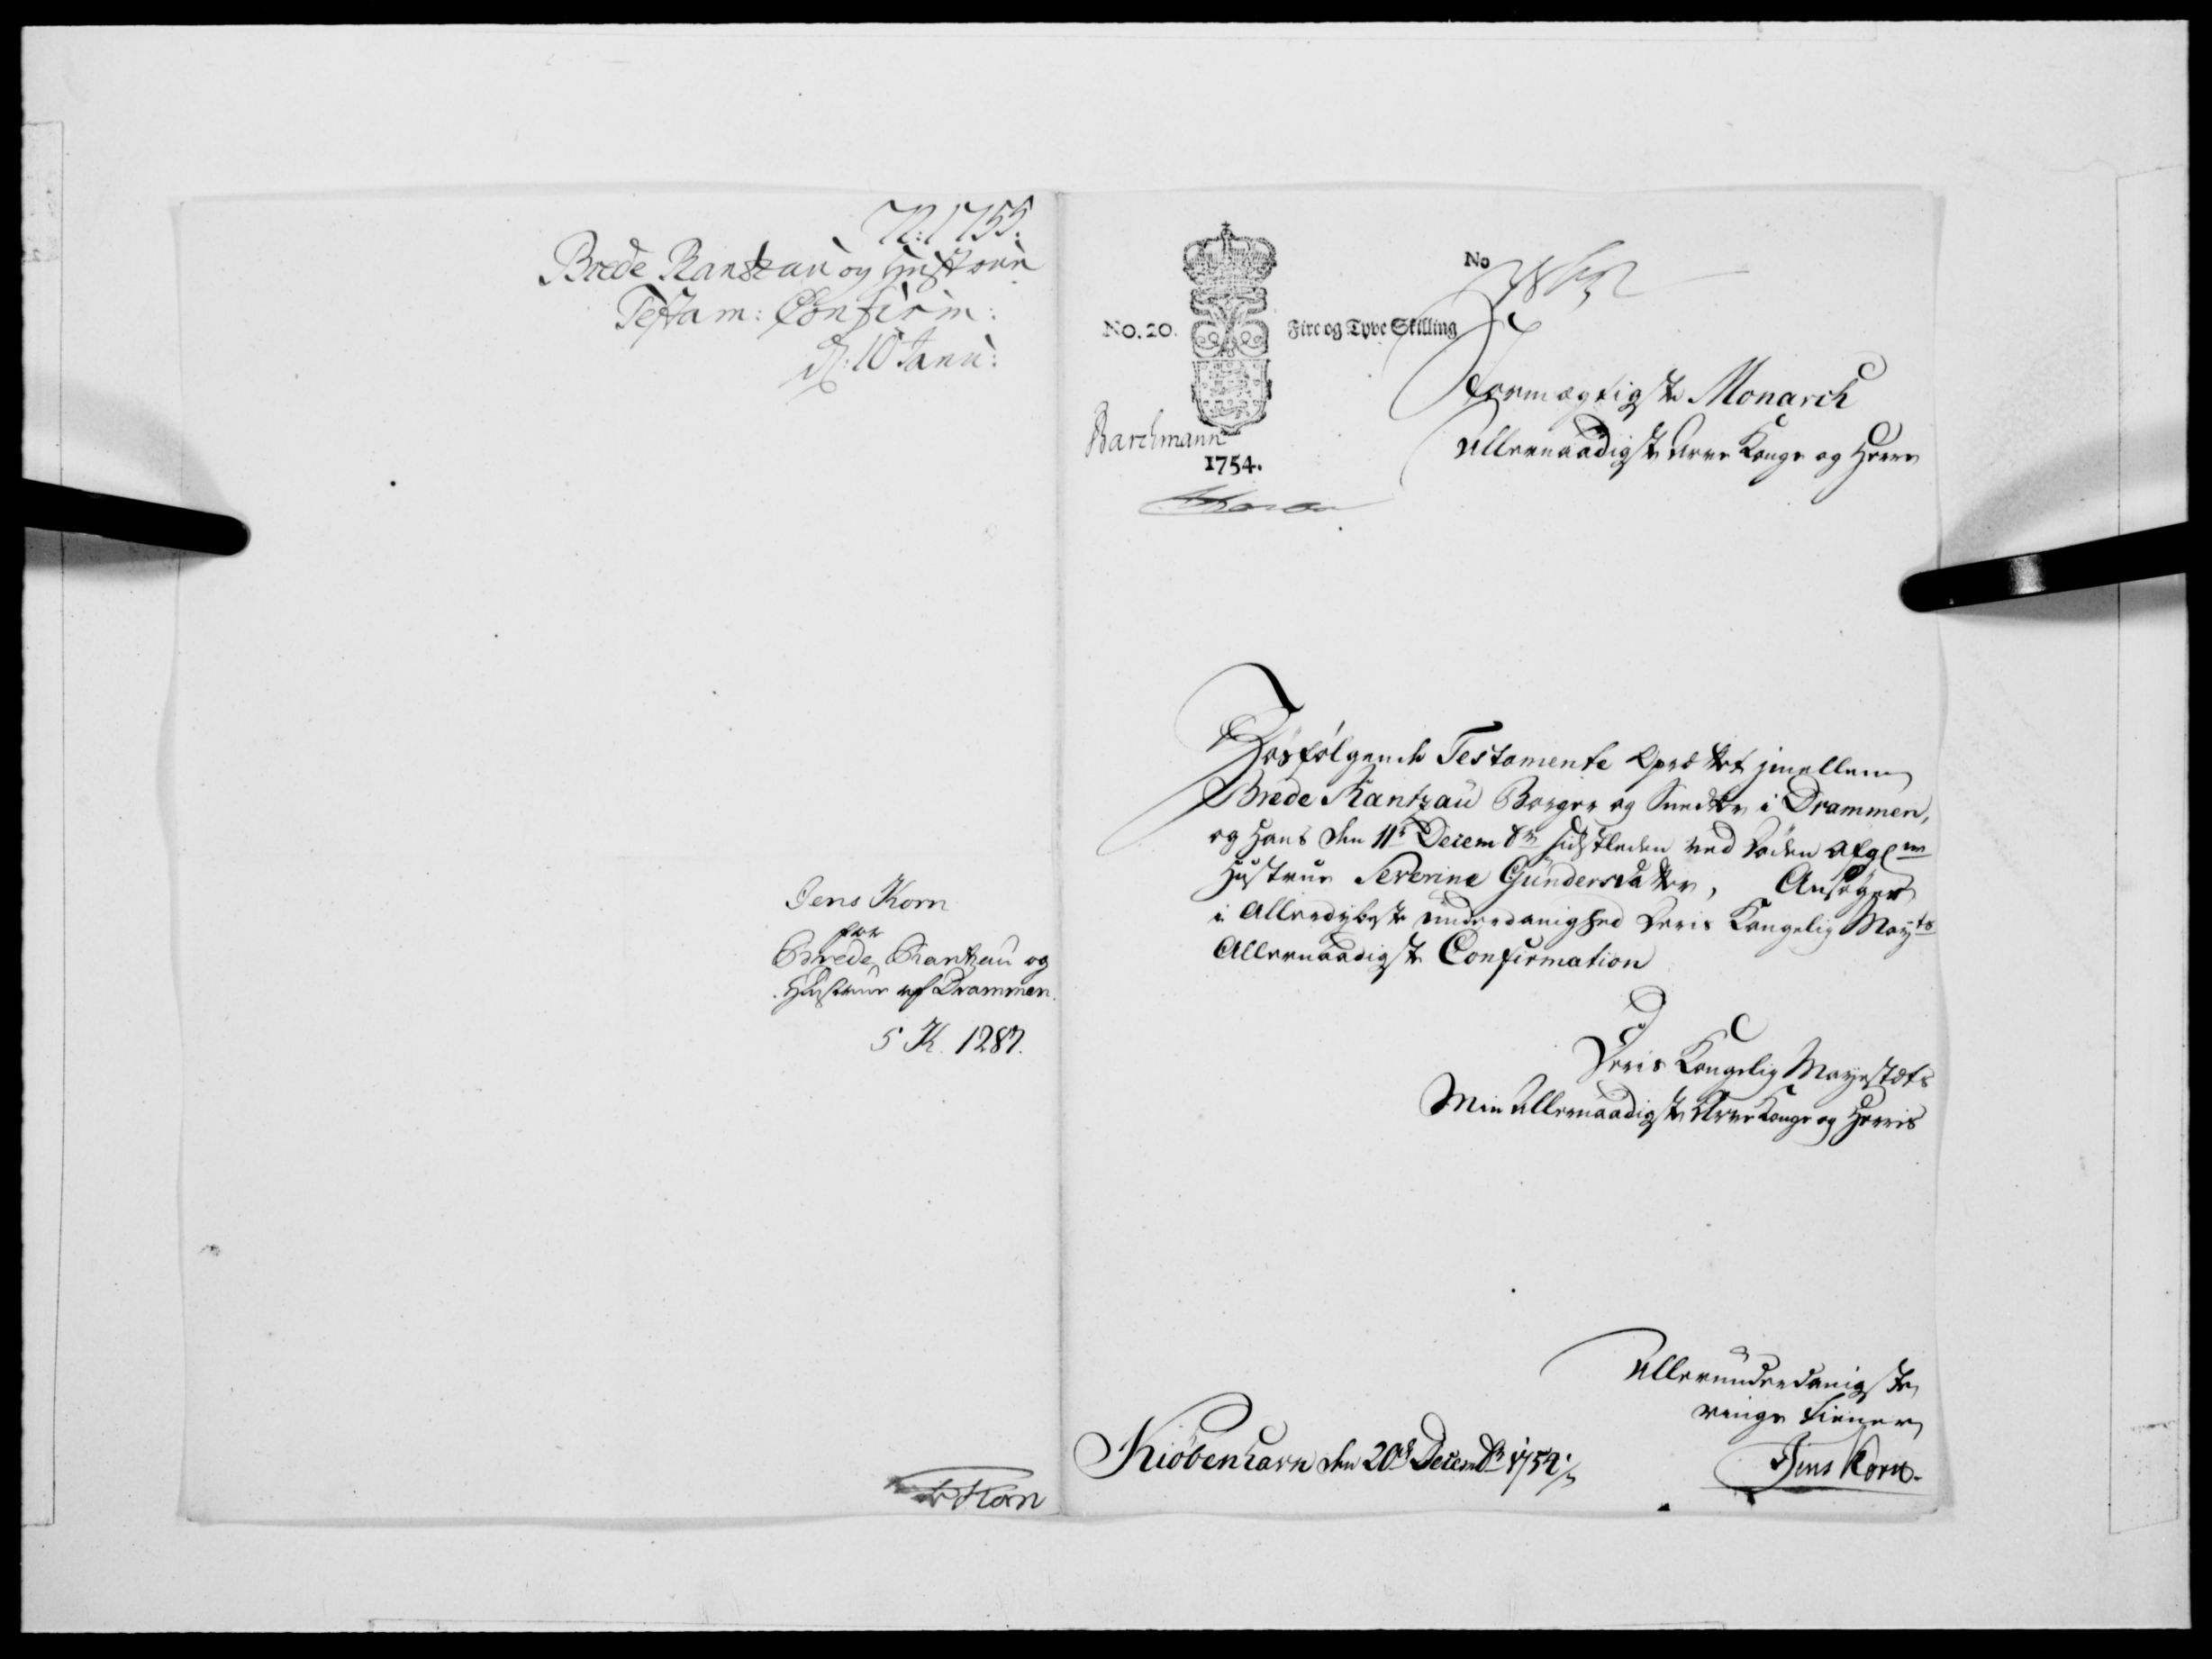 N: 1755.
Brede Rantzau og Hustrue
Testam: Confirm:
d: 10 Janu:
Jens Korn
for
Brede Rantzau og
Hustrue af Drammen.
5 K. 1287.
Korn
No
No. 20.
Fire og Tyve Skilling
Barchmann
1754.
Stormægtigste Monarch
Allernaadigste Arve Konge og Herre
Hosfølgende Testamente Oprættet imellem
Brede Rantzau Borger og Snedker i Drammen,
og Hans den 11te Decembr sidstleden ved Døden afgl
Hustrue Severine Gundersdatter, Ansøges
i Allerdybeste underdanighed Deris Kongelig Mayts
Allernaadigste Confirmation
Deris Kongelig Mayestæts
Min Allernaadigste Arve Konge og Herris
Allerunderdanigste
ringe tiener
Jens Korn.
Kiøbenhavn den 20de Decembr 1754.